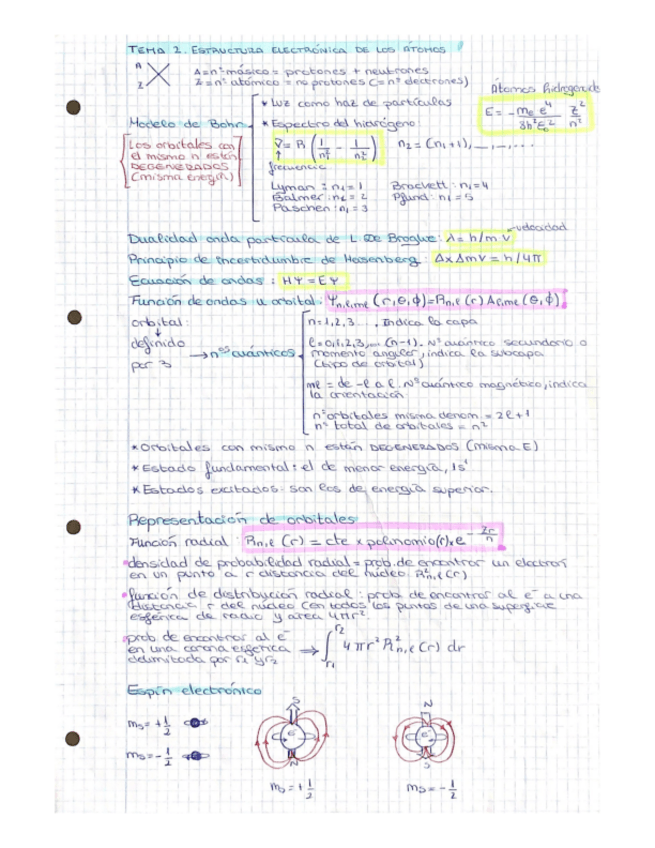 TEMA 2. ESTRUCTURA ELECTRÓNICA DE LOS ÁTOMOS
A
Z X
A = nº másico = protones + neutrones
Z = nº atómico = no protones (= nº electrones)
Átomos hidrogenoides
* Luz como haz de partículas
E = - me e⁴ / 8h²E₀² Z² / n²
Modelo de Bohr
* Espectro del hidrógeno:
[Los orbitales con el mismo n están DEGENERADOS (misma energía)]
ν = R (1/n₁² - 1/n₂²) n₂ = (n₁+1), ...
↑
frecuencia
Lyman : n₁ = 1 Brackett : n₁ = 4
Balmer : n₁ = 2 Pfund : n₁ = 5
Paschen : n₁ = 3
Dualidad onda partícula de L. De Broglie : λ = h/m v → velocidad
Principio de incertidumbre de Hasenberg : Δx Δmv = h/4π
Ecuación de ondas : HΨ = EΨ
Función de ondas u orbital : Ψn,l,ml (r,θ,φ) = Rn,l (r) Al,ml (θ,φ)
orbital
↓
definido
por 3
→ nºˢ cuánticos
n = 1,2,3... , Indica la capa
l = 0,1,2,3,... (n-1). Nº cuántico secundario o
momento angular, indica la subcapa
(tipo de orbital)
ml = de -l a l. Nº cuántico magnético, indica
la orientación
nº orbitales misma denom = 2l+1
nº total de orbitales = n²
* Orbitales con mismo n están DEGENERADOS (misma E)
* Estado fundamental : el de menor energía, 1s¹
* Estados excitados : son los de energía superior.
Representación de orbitales
Función radial : Rn,l (r) = cte × polinomio(r) × e^(-Zr/n)
• densidad de probabilidad radial = prob. de encontrar un electrón
en un punto a r distancia del núcleo R²n,l (r)
• función de distribución radial : prob de encontrar al e⁻ a una
distancia r del núcleo (en todos los puntos de una superficie
esférica de radio y area 4πr².
• prob de encontrar al e⁻
en una corona esférica
delimitada por r₁ y r₂
→ ∫r₁r₂ 4πr² R²n,l (r) dr
Espín electrónico
ms = +1/2
ms = -1/2
S
e⁻
N
ms = +1/2
N
e⁻
S
ms = -1/2